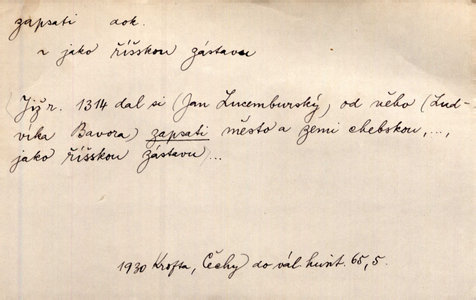 zapsati dok.
~ jako říšskou zástavu
Již r. 1314 dal si (Jan Lucemburský) od něho (Lud-
víka Bavora) zapsati město a zemi chebskou, ...,
jako říšskou zástavu ...
1930 Krofta, Čechy do vál. husit. 65, 5.